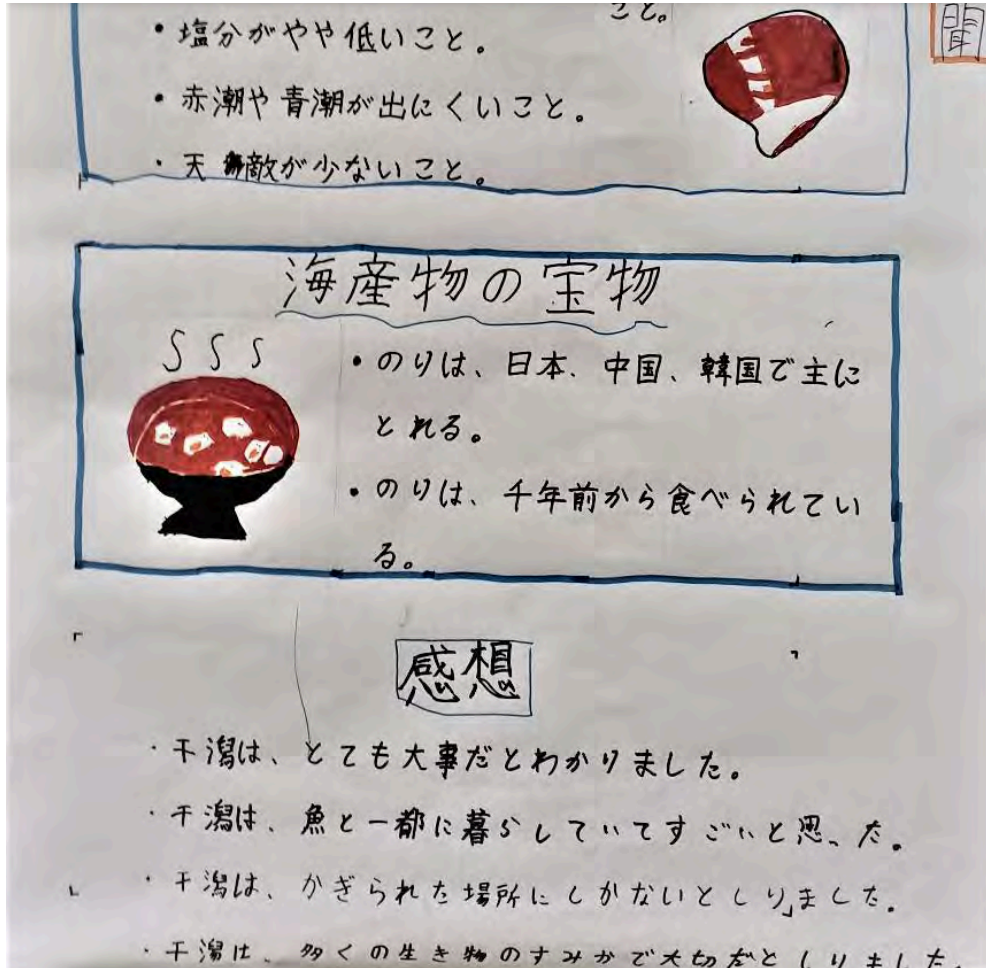 こと。
聞
・塩分がやや低いこと。
・赤潮や青潮が出にくいこと。
・天敵が少ないこと。
海産物の宝物
・のりは、日本、中国、韓国で主に
とれる。
・のりは、千年前から食べられてい
る。
感想
・干潟は、とても大事だとわかりました。
・干潟は、魚と一都に暮らしていてすごいと思った。
・干潟は、かぎられた場所にしかないとしりました。
・干潟は、多くの生き物のすみかで大切だとしりました。